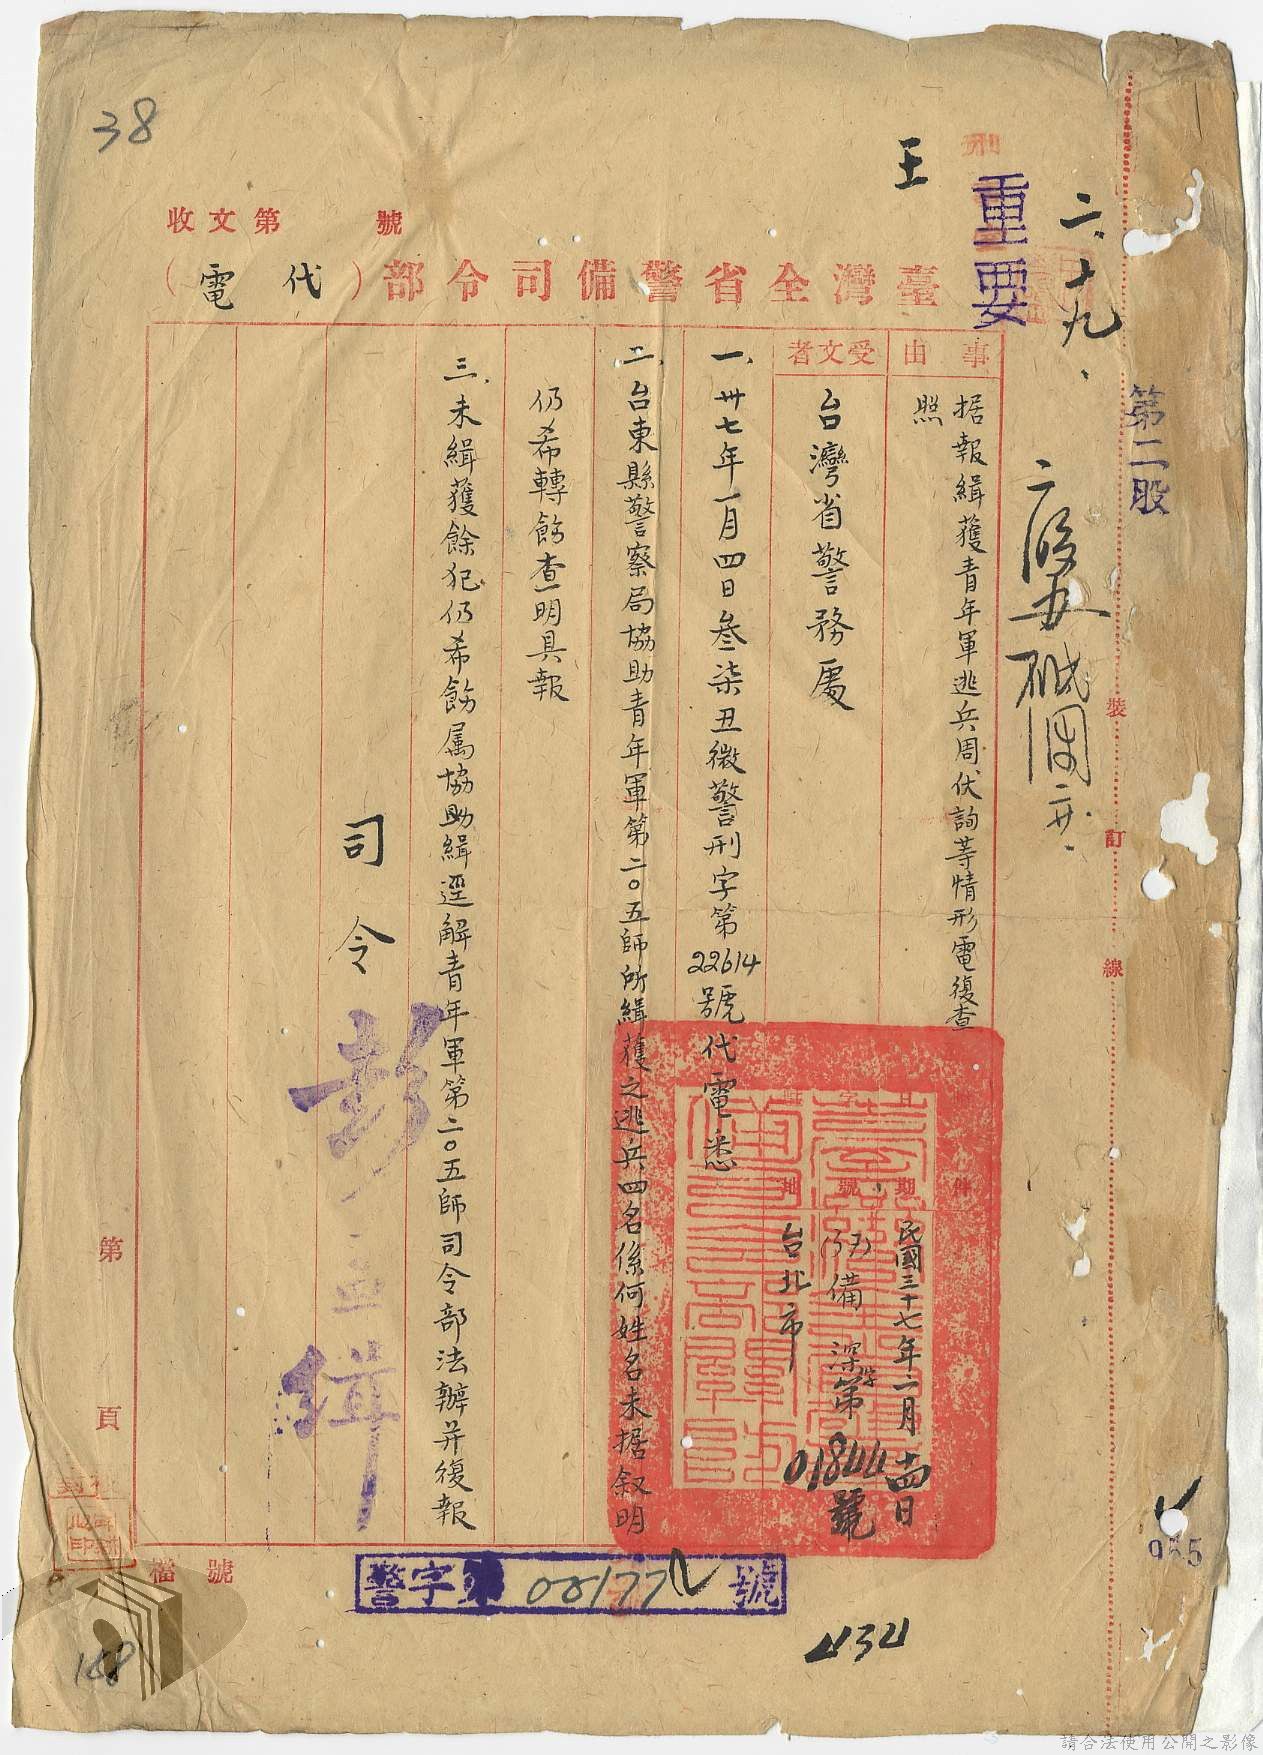 38
王
重要
二、十九、
第二股
收文第 號
臺灣全省警備司令部（代電）
事由
据報緝獲青年軍逃兵周伏詢等情形電復查
照
受文者
台灣省警務處
件
日期
民國三十七年二月十四日
字號
備 字第01844號
地
台北市
一、卅七年一月四日叁柒丑微警刑字第22614號代電悉
二、台東縣警察局協助青年軍第二〇五師所緝獲之逃兵四名係何姓名未据叙明
仍希轉飭查明具報
三、未緝獲餘犯仍希飭属協助緝逕解青年軍第二〇五師司令部法辦并復報
司令 彭孟緝
裝
訂
線
第 頁
檔 號
警字第 00177 號
434
955
148
請合法使用公開之影像